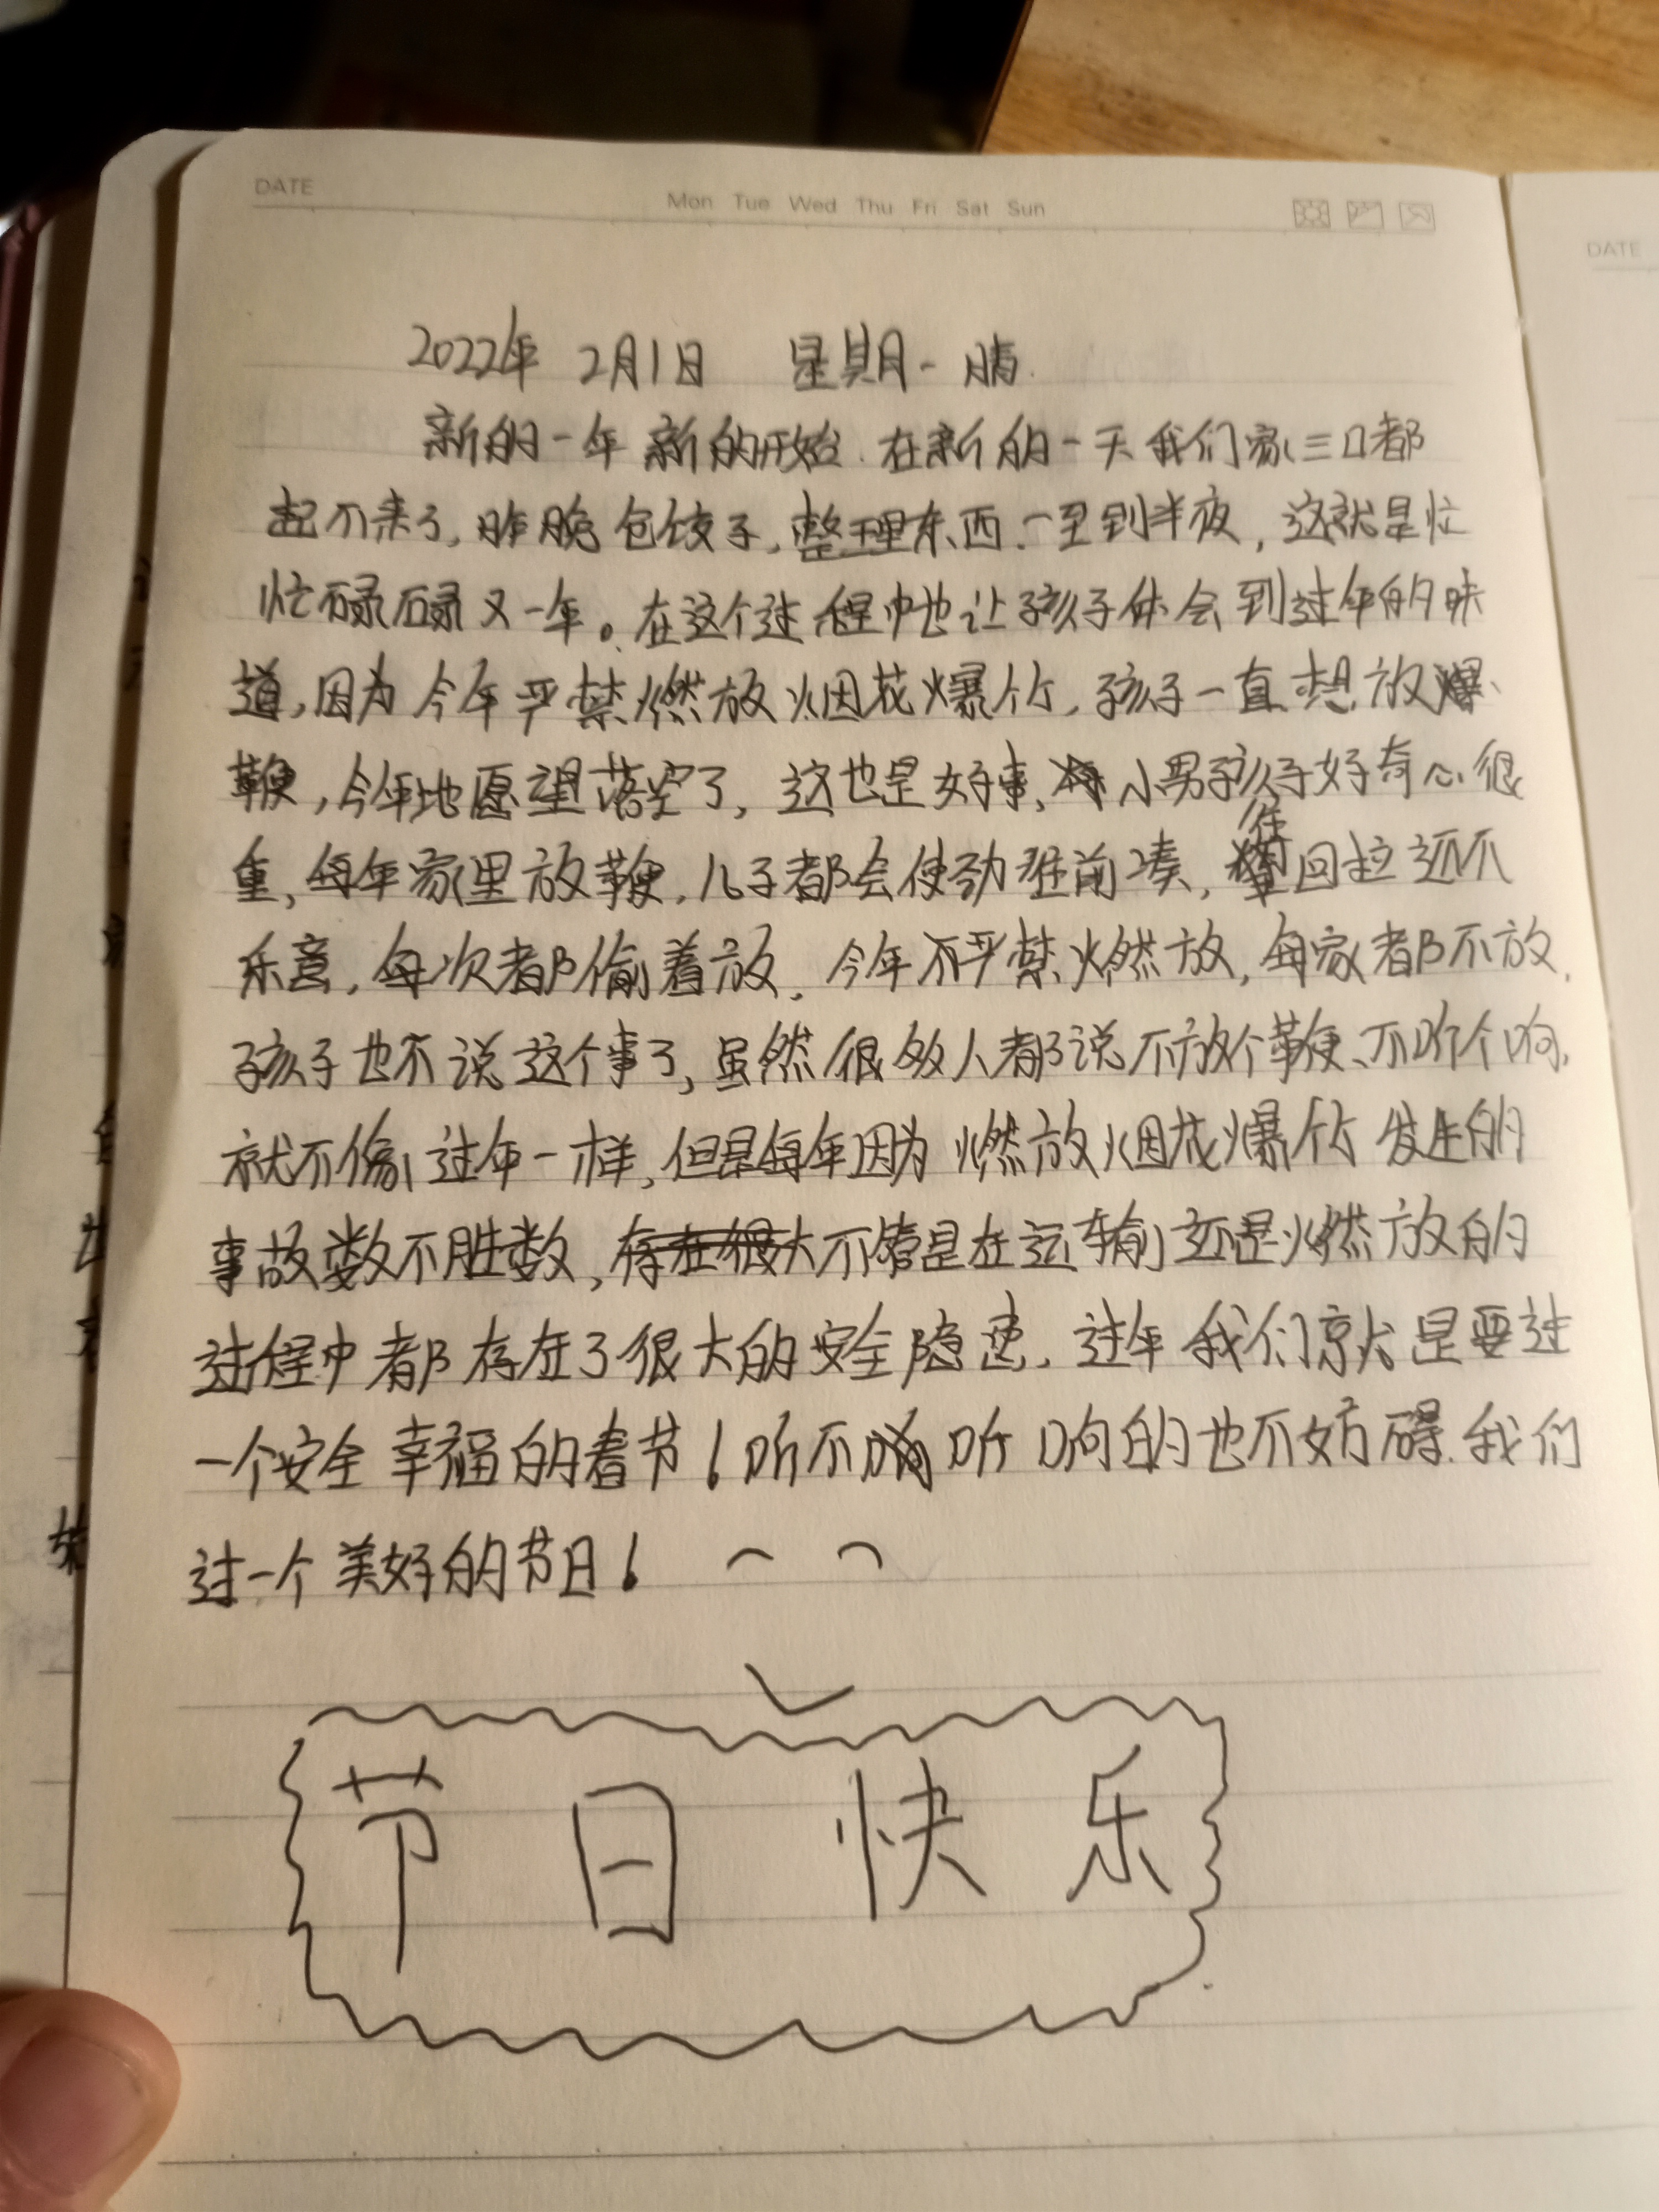 DATE
Mon Tue Wed Thu Fri Sat Sun
DATE
2022年 2月1日 星期一 晴.
新的一年 新的开始. 在新的一天 我们家三口都
起不来了, 昨晚包饺子, 整理东西. 一至到半夜, 这就是忙
忙碌碌又一年。在这个过程中也让孩子体会到过年的味
道, 因为今年严禁燃放烟花爆竹, 孩子一直想放爆
鞭, 今年地愿望落空了, 这也是好事, 小男孩子好奇心很
重, 每年家里放鞭, 儿子都会使劲往前凑, 往回拉还不
乐意, 每次都偷着放. 今年不严禁燃放, 每家都不放.
孩子也不说这个事了, 虽然很多人都说不放个鞭、不听个响,
就不像过年一样, 但是每年因为燃放烟花爆竹发生的
事故数不胜数, 存在很大不管是在运输还是燃放的
过程中都存在了很大的安全隐患. 过年我们就是要过
一个安全幸福的春节! 听不听响的也不妨碍. 我们
过一个美好的节日!
节日快乐